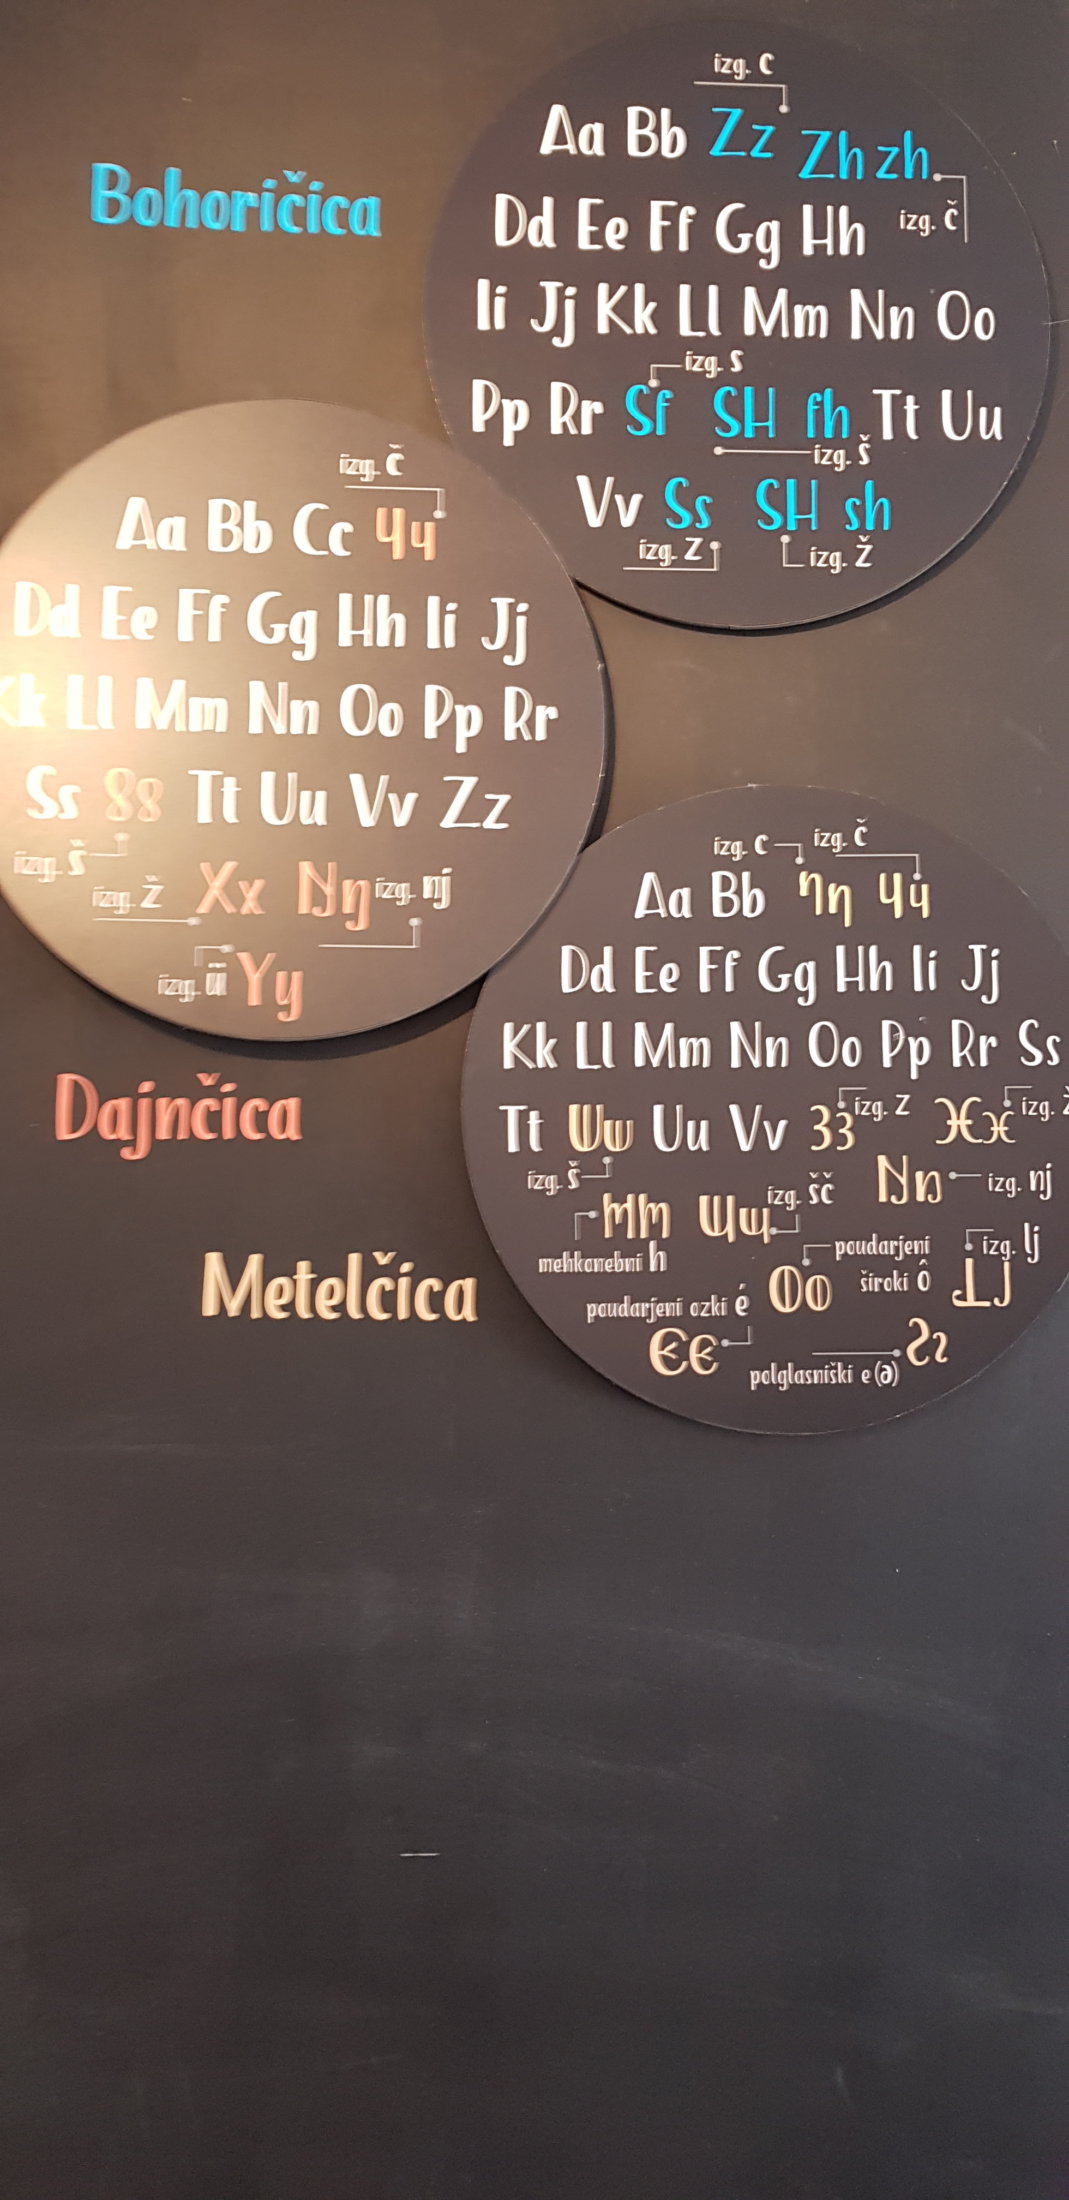 Bohoričica
izg. c
Aa Bb Zz Zh zh
izg. č
Dd Ee Ff Gg Hh
Ii Jj Kk Ll Mm Nn Oo
izg. s
Pp Rr Sſ SH ſh Tt Uu
izg. š
Vv Ss SH sh
izg. z izg. ž
izg. č
Aa Bb Cc Ч ч
Dd Ee Ff Gg Hh Ii Jj
Kk Ll Mm Nn Oo Pp Rr
Ss 88 Tt Uu Vv Zz
izg. š
izg. ž Xx Ŋŋ izg. nj
izg. ü Yy
Dajnčica
izg. c izg. č
Aa Bb Ꞃꞃ Чч
Dd Ee Ff Gg Hh Ii Jj
Kk Ll Mm Nn Oo Pp Rr Ss
Tt Шш Uu Vv 33 izg. z Ӿӿ izg. ž
izg. š
izg. šč Ŋŋ izg. nj
mehkonebni h
poudarjeni široki ô
izg. lj
poudarjeni ozki é
Єє
polglasniški e (ə)
Metelčica